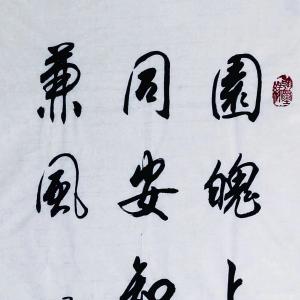 園魄上
同安知
兼風